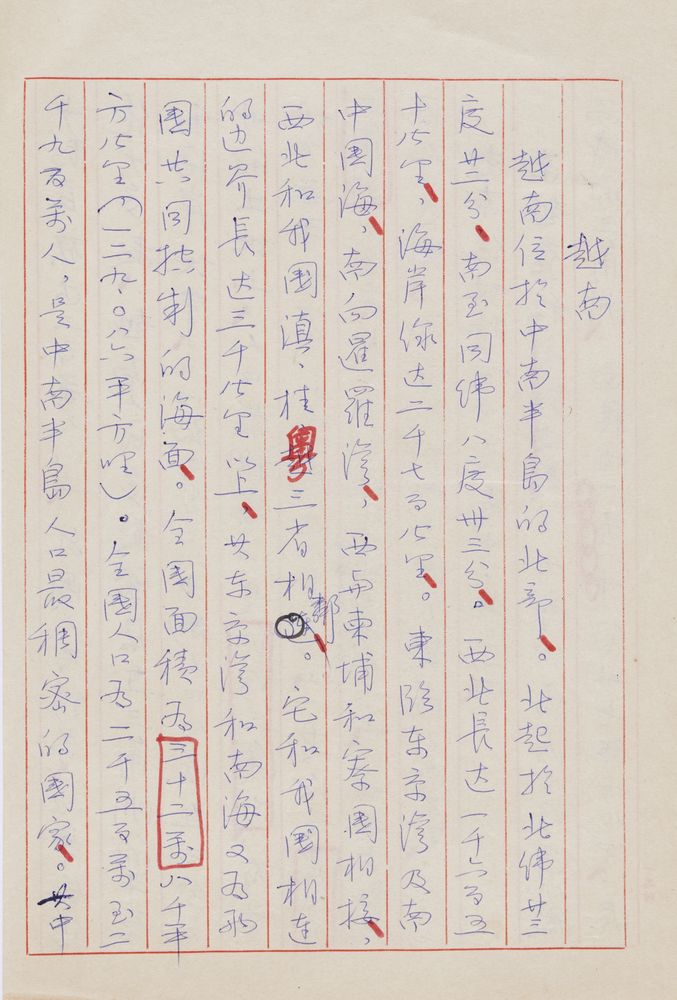 越南
越南位於中南半島的北部。北起於北緯廿三
度廿三分，南至同緯八度卅三分。西北長达一千六百五
十公里，海岸線达二千七百公里。東臨东京湾及南
中国海，南向暹羅湾，西与柬埔和寮國相接，
西北和我國滇、桂粤三省相鄰。它和我國相連
的边界長达三千公里以上，其东京湾和南海又為兩
國共同控制的海面。全國面積為三十二萬八千平
方公里（一二九.〇八六平方哩）。全國人口為二千五百萬至二
千九百萬人，是中南半島人口最稠密的國家。其中